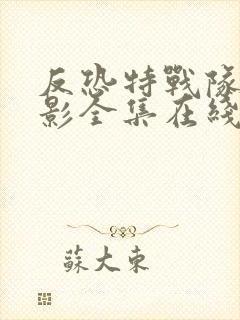 反恐特戰隊
影全集在綫
蘇大東